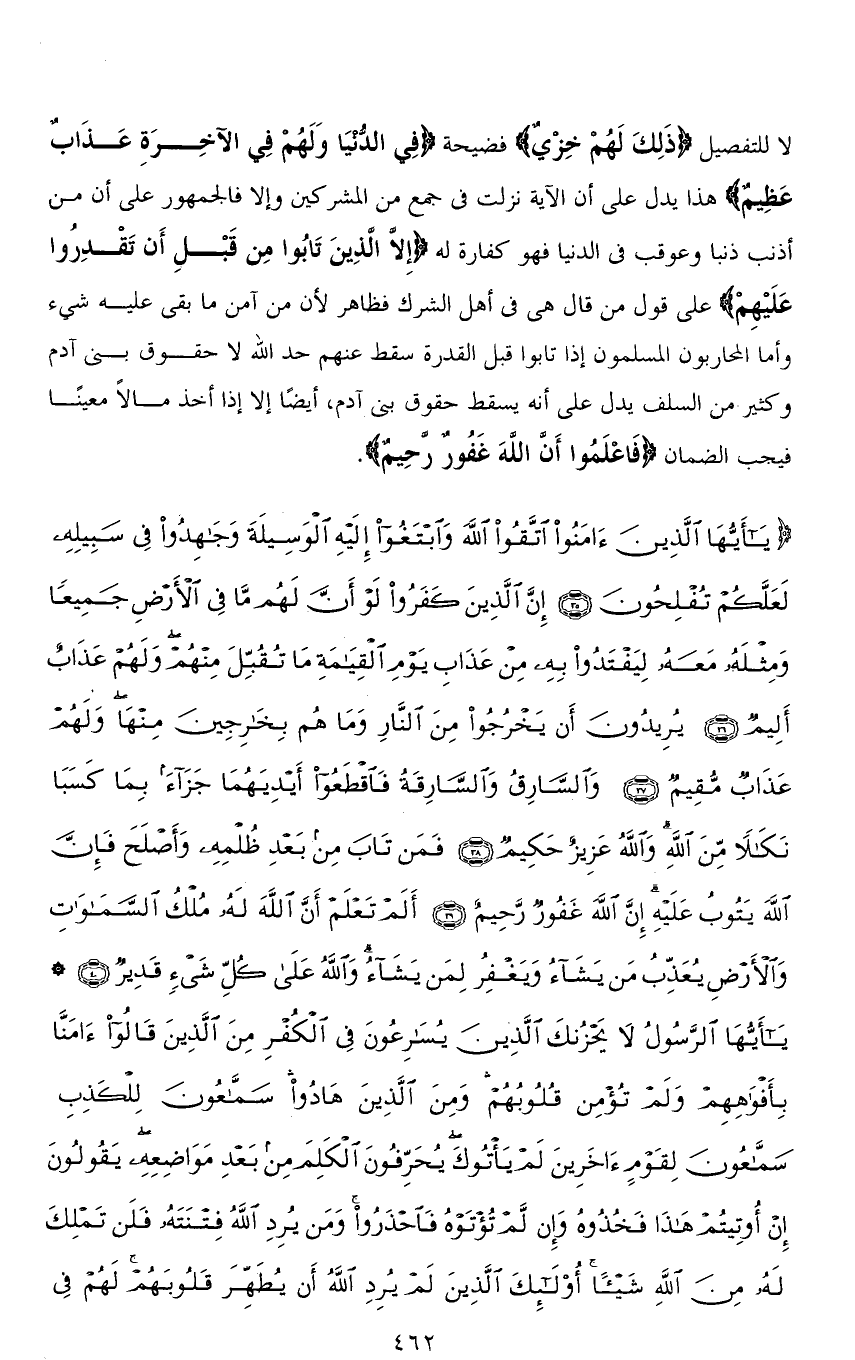 لا للتفصيل ﴿ذَلِكَ لَهُمْ خِزْيٌ﴾ فضيحة ﴿فِي الدُّنْيَا وَلَهُمْ فِي الآخِـــرَةِ عَــذَابٌ
عَظِيمٌ﴾ هذا يدل على أن الآية نزلت فى جمع من المشركين وإلا فالجمهور على أن مـن
أذنب ذنبا وعوقب فى الدنيا فهو كفارة له ﴿إِلاَّ الَّذِينَ تَابُوا مِن قَبْــلِ أَن تَقْــدِرُوا
عَلَيْهِمْ﴾ على قول من قال هى فى أهل الشرك فظاهر لأن من آمن ما بقى عليـه شيء
وأما المحاربون المسلمون إذا تابوا قبل القدرة سقط عنهم حد الله لا حقــوق بــنى آدم
وكثير من السلف يدل على أنه يسقط حقوق بنى آدم، أيضًا إلا إذا أخذ مــالاً معينًــا
فيجب الضمان ﴿فَاعْلَمُوا أَنَّ اللَّهَ غَفُورٌ رَّحِيمٌ﴾.
﴿ يَـٰٓأَيُّهَا ٱلَّذِينَ ءَامَنُوا۟ ٱتَّقُوا۟ ٱللَّهَ وَٱبْتَغُوٓا۟ إِلَيْهِ ٱلْوَسِيلَةَ وَجَـٰهِدُوا۟ فِى سَبِيلِهِۦ
لَعَلَّكُمْ تُفْلِحُونَ ٣٥ إِنَّ ٱلَّذِينَ كَفَرُوا۟ لَوْ أَنَّ لَهُم مَّا فِى ٱلْأَرْضِ جَمِيعًا
وَمِثْلَهُۥ مَعَهُۥ لِيَفْتَدُوا۟ بِهِۦ مِنْ عَذَابِ يَوْمِ ٱلْقِيَـٰمَةِ مَا تُقُبِّلَ مِنْهُمْ ۖ وَلَهُمْ عَذَابٌ
أَلِيمٌ ٣٦ يُرِيدُونَ أَن يَخْرُجُوا۟ مِنَ ٱلنَّارِ وَمَا هُم بِخَـٰرِجِينَ مِنْهَا ۖ وَلَهُمْ
عَذَابٌ مُّقِيمٌ ٣٧ وَٱلسَّارِقُ وَٱلسَّارِقَةُ فَٱقْطَعُوٓا۟ أَيْدِيَهُمَا جَزَآءًۢ بِمَا كَسَبَا
نَكَـٰلًا مِّنَ ٱللَّهِ ۗ وَٱللَّهُ عَزِيزٌ حَكِيمٌ ٣٨ فَمَن تَابَ مِنۢ بَعْدِ ظُلْمِهِۦ وَأَصْلَحَ فَإِنَّ
ٱللَّهَ يَتُوبُ عَلَيْهِ ۗ إِنَّ ٱللَّهَ غَفُورٌ رَّحِيمٌ ٣٩ أَلَمْ تَعْلَمْ أَنَّ ٱللَّهَ لَهُۥ مُلْكُ ٱلسَّمَـٰوَٰتِ
وَٱلْأَرْضِ يُعَذِّبُ مَن يَشَآءُ وَيَغْفِرُ لِمَن يَشَآءُ ۗ وَٱللَّهُ عَلَىٰ كُلِّ شَىْءٍ قَدِيرٌ ٤٠ *
يَـٰٓأَيُّهَا ٱلرَّسُولُ لَا يَحْزُنكَ ٱلَّذِينَ يُسَـٰرِعُونَ فِى ٱلْكُفْرِ مِنَ ٱلَّذِينَ قَالُوٓا۟ ءَامَنَّا
بِأَفْوَٰهِهِمْ وَلَمْ تُؤْمِن قُلُوبُهُمْ ۛ وَمِنَ ٱلَّذِينَ هَادُوا۟ ۛ سَمَّـٰعُونَ لِلْكَذِبِ
سَمَّـٰعُونَ لِقَوْمٍ ءَاخَرِينَ لَمْ يَأْتُوكَ ۖ يُحَرِّفُونَ ٱلْكَلِمَ مِنۢ بَعْدِ مَوَاضِعِهِۦ ۖ يَقُولُونَ
إِنْ أُوتِيتُمْ هَـٰذَا فَخُذُوهُ وَإِن لَّمْ تُؤْتَوْهُ فَٱحْذَرُوا۟ ۚ وَمَن يُرِدِ ٱللَّهُ فِتْنَتَهُۥ فَلَن تَمْلِكَ
لَهُۥ مِنَ ٱللَّهِ شَيْـًٔا ۚ أُو۟لَـٰٓئِكَ ٱلَّذِينَ لَمْ يُرِدِ ٱللَّهُ أَن يُطَهِّرَ قُلُوبَهُمْ ۚ لَهُمْ فِى
٤٦٢